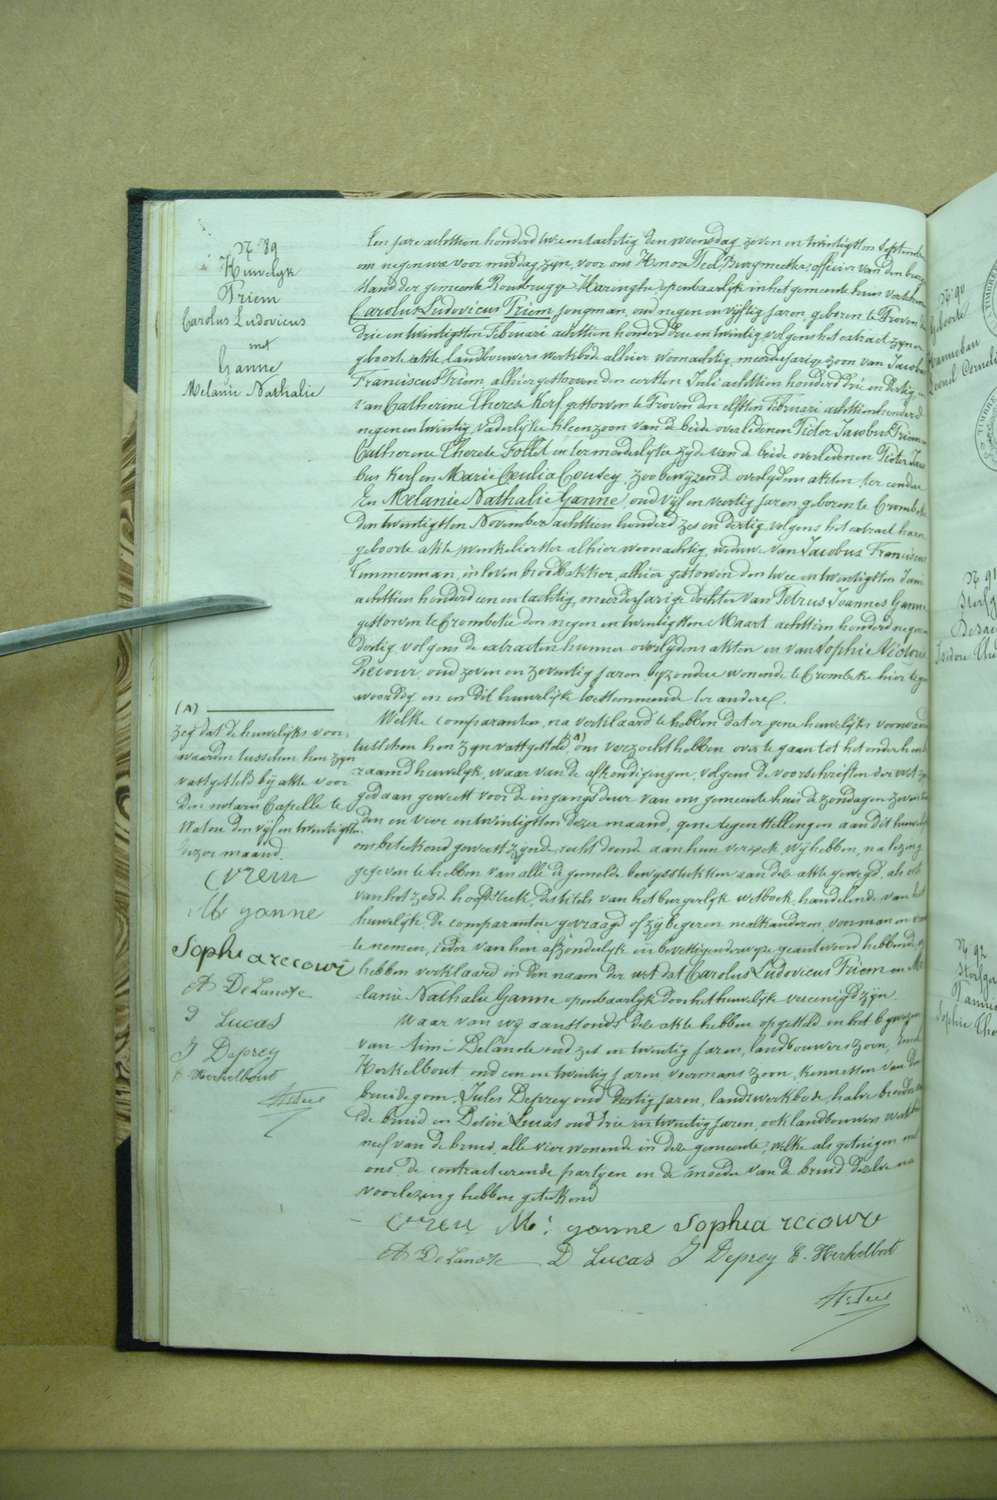 N. 89
Huwelijk
Priem
Carolus Ludovicus
met
Ganne
Melanie Nathalie
Een jare achttien honderd twee en tachtig den woensdag zeven en twintigsten September
om negen ure voor middag zyn, voor ons Honoré Teel Burgmeester, officier van den burger
stand der gemeente Rousbrugge Haringhe openbaarlyk in het gemeente huis verschenen
Carolus Ludovicus Priem, jongman, oud negen en vijftig jaren, geboren te Proven den
drie en twintigsten Februari achttien honderd drie en twintig volgens het extract zyner
geboorte akte, landbouwers werkbode alhier woonachtig, meerderjarige zoon van Jacobus
Franciscus Priem, alhier gestorven den eersten Juli achttien honderd drie en dertig en
van Catherine Therese Kerf gestorven te Proven den elfsten Februari achttien honderd
negen en twintig, vaderlyke kleenzoon van de beide overledenen Pieter Jacobus Priem en
Catherene Therese Follet en ter moederlyke zyde van de beide overledenen Pieter Jaco
bus Kerf en Marie Cecilia Cousey, zoo bewyzen de overlydens akten, ter eendre
En Melanie Nathalie Ganne oud vijf en veertig jaren, geboren te Crombeke
den twintigsten November achttien honderd zes en dertig volgens het extract harer
geboorte akte, werkeliersster alhier woonachtig, weduwe van Jacobus Franciscus
Timmerman, in leven broodbakker, alhier gestorven den twee en twintigsten Juni
achttien honderd een en tachtig, meerderjarige dochter van Petrus Joannes Ganne
gestorven te Crombeke den negen en twintigsten Maart achttien honderd negen en
dertig volgens de extracten hunner overlydens akten en van Sophie Victoria
Recour oud zeven en zeventig jaren byzondere wonende te Crombeke hier tegen
woordig en in dit huwelyk toestemmende ter andere.
Welke comparanten, na verklaard te hebben dat er gene huwelyks voorwaarden
tusschen hen zyn vastgesteld, (A) ons verzocht hebben over te gaan tot het onder hen be
raamd huwelyk, waar van de afkondigingen, volgens de voorschriften der wet zyn
gedaan geweest voor de ingangs deur van ons gemeente huis de zondagen zeven tien
den en vier en twintigsten dezer maand, gene tegenstellingen aan dit huwelyk
ons beteekend geweest zynde, recht doende aan hun verzoek, wy hebben, na lezing
gegeven te hebben van alle de gemelde bewysstukken aan deze akte gevoegd, als ook
van het zesde hoofdstuk des titels van het burgerlyk wetboek, handelende van het
huwelyk, de comparanten gevraagd of zy begeren malkanderen voor man en vrouw
te nemen, ieder van hen afzonderlyk en bevestigender wyze geantwoord hebbende, wy
hebben verklaard in den naam der wet dat Carolus Ludovicus Priem en Me
lanie Nathalie Ganne openbaarlyk door het huwelyk vereenigd zyn.
Waar van wy aanstonds deze akte hebben opgesteld in het bywezen
van Aimé Delanote oud zes en twintig jaren, landbouwers zoon,
Herkelbout oud een en twintig jaren voermans zoon, kennissen van den
bruidegom, Jules Deprey oud dertig jaren, landswerkbode, halve broeder van
de bruid en Desiré Lucas oud drie en twintig jaren, ook landbouwers werkbode
nef van de bruid, alle vier wonende in deze gemeente, welke als getuigen met
ons de contracteerende partyen en de moeder van de bruid deze akte na
voorlezing hebben geteekend
Priem M: ganne Sophia reccour
A DeLanote D Lucas J Deprey E. Herkelbout
Hr Teel
(A)
Zeg dat de huwelyks voor
waarden tusschen hen zyn
vastgesteld bij akte voor
den notaris Capelle te
Watou den vijf en twintigsten
dezer maand.
Priem
M ganne
Sophia reccour
A DeLanote
D Lucas
J Deprey
E Herkelbout
Hr Teel
N. 90
Geboorte
N. 91
N. 92